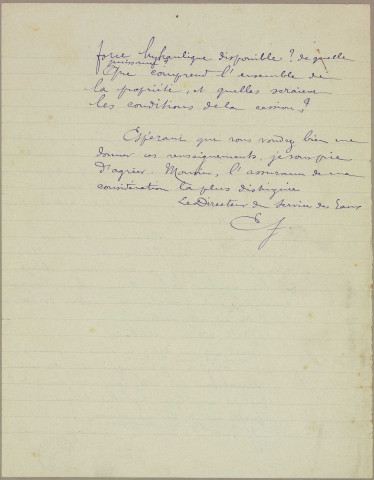 force hydraulique disponible ? de quelle
puissance ?
Que comprend l'ensemble de
la propriété, et quelles seraient
les conditions de la cession ?
Espérant que vous voudrez bien me
donner ces renseignements, je vous prie
d'agréer, Monsieur, l'assurance de ma
considération la plus distinguée
Le Directeur du Service des Eaux